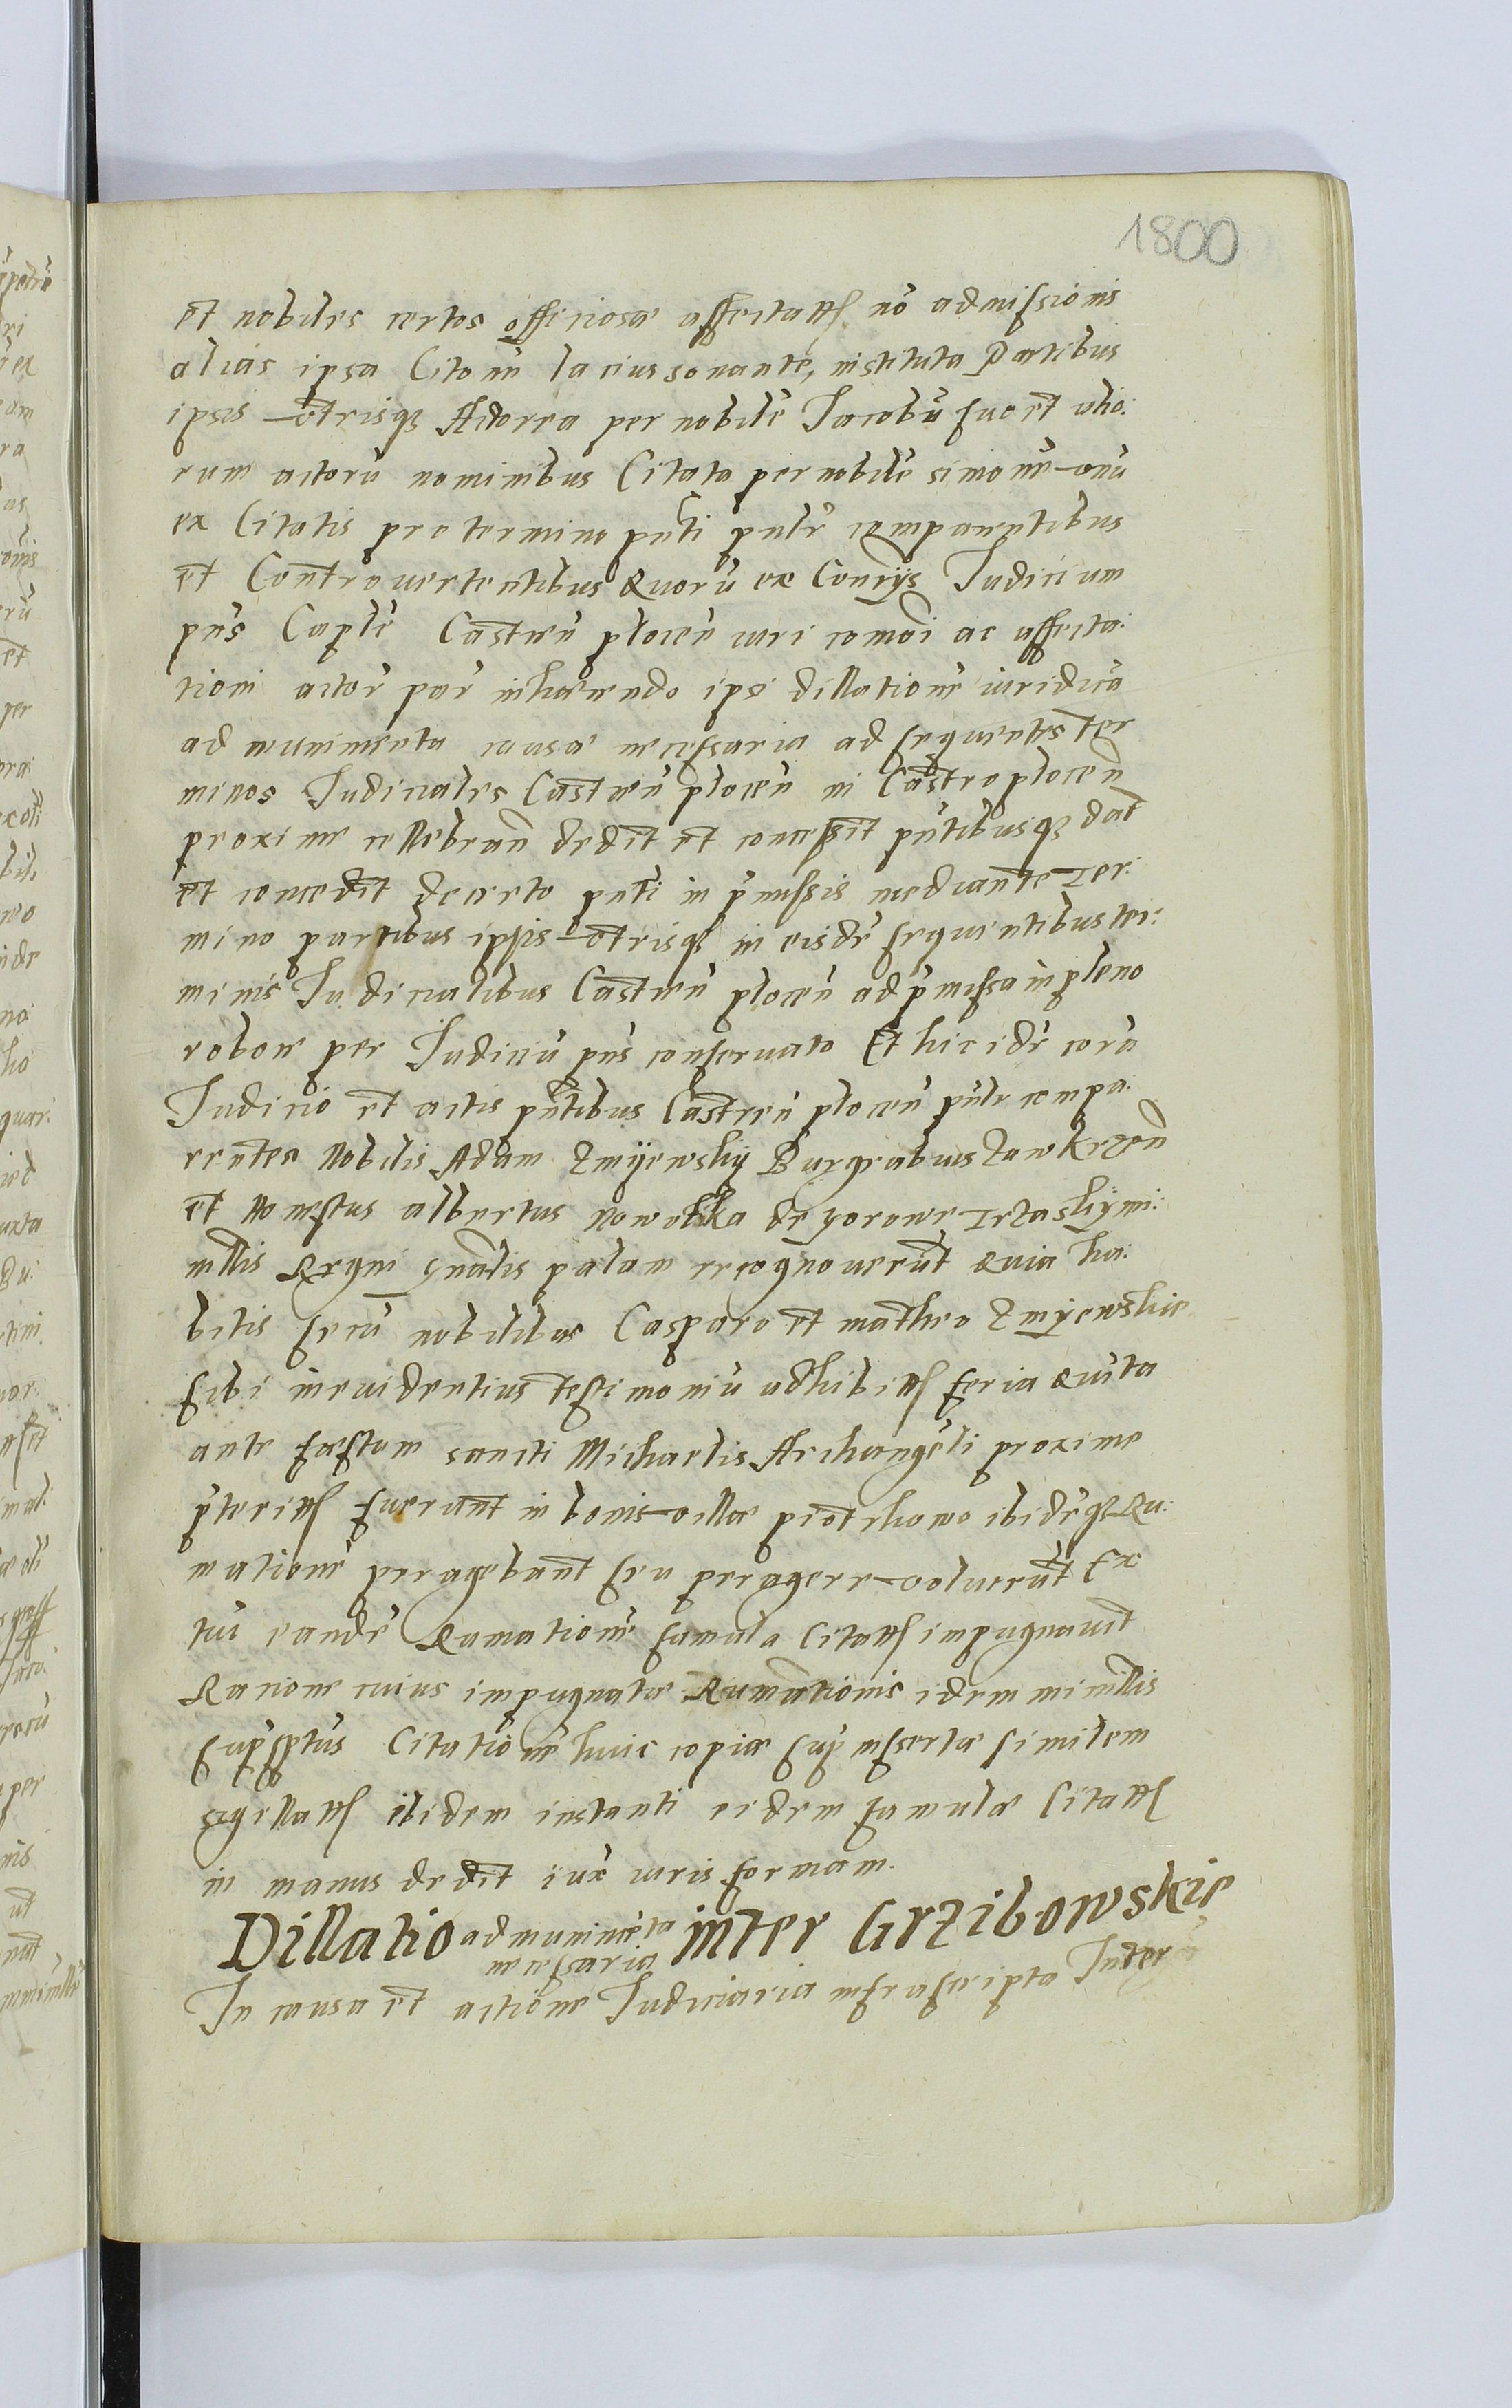 1800
et nobiles certos officiosæ affectatas nō admissionis
alias ipsa Citoñe lacius sonante, instituta Partibus
ipsis vtrisq3 Actorea per nobilē Jacobū suo et alio:
rum actorū nominibus Citata per nobilē simonē vnū
ex Citatis pro termino pñti pñlr comparentibus
et Controuertentibus Quorū ex Conrijs Judicium
pñs Capłe Castreñ ploceñ iuri comōi ac affecta:
tioni actor̄ par̄ inhærendo ipsi dillationē iuridicā
ad munimenta causæ necessaria ad sequentes ter
minos Judiciales Castreñ ploceñ in Castro ploceñ
proxime cellebrañ dedit et concessit pñtibusq3 dat
et concedit decreto pñti in p̄missis mediante Ter:
mino partibus ipsis vtrisq3 in eisdē sequentibus ter:
minis Judicialibus Castreñ ploceñ ad p̄missa in pleno
robore per Judiciū pñs conseruato Et hic idē corā
Judicio et actis pñtibus Castreñ ploceñ pñlr compa:
rentes Nobilis Adam Zmijewskij Burgrabius Zawkrzeñ
et Honestus albertus Nowotka de gorowe Trzaskij mi:
nllis Regni gñalis palam recognouerūt Quia ha:
bitis secū nobilibus Casparo et matheo Zmijewskie
sibi in euidentius testimoniū adhibitis feria Quīta
ante fæstum sancti Michaelis Archangeli proxime
p̄teritis fuerunt in bonis villæ piotrkowo ibidēq3 Ru:
mationē peragebant seu peragere voluerūt Ex
tūc eandē Rumationē famula Citatis impugnauit
Racione cuius impugnatæ Rumationis idem minllis
sup̄sc̄ptus Citationē huic copiæ sup̄ insertæ similem
sigillatis ibidem instanti eidem famulæ Citatis
in manus dedit iux̄ iuris formam.
Dillatio ad munimēta necessaria inter Grzibowskie
In causa et actione Judiciaria infrascripta Inter